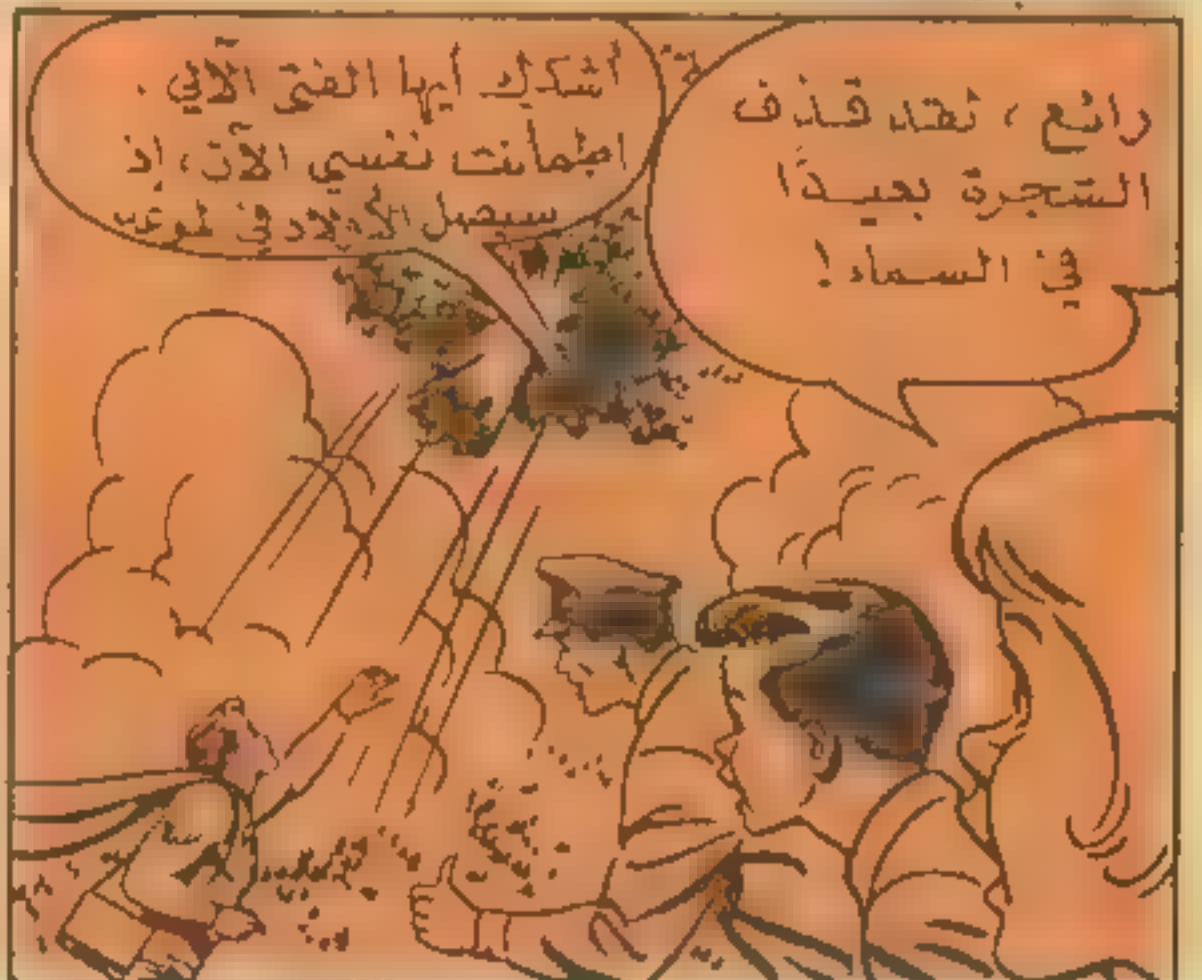 رائع ، لقد قذف
الشجرة بعيدًا
في السماء !
أشكرك أيها الفتى الآلي .
اطمأنت نفسي الآن ، إذ
سيصل الأولاد في